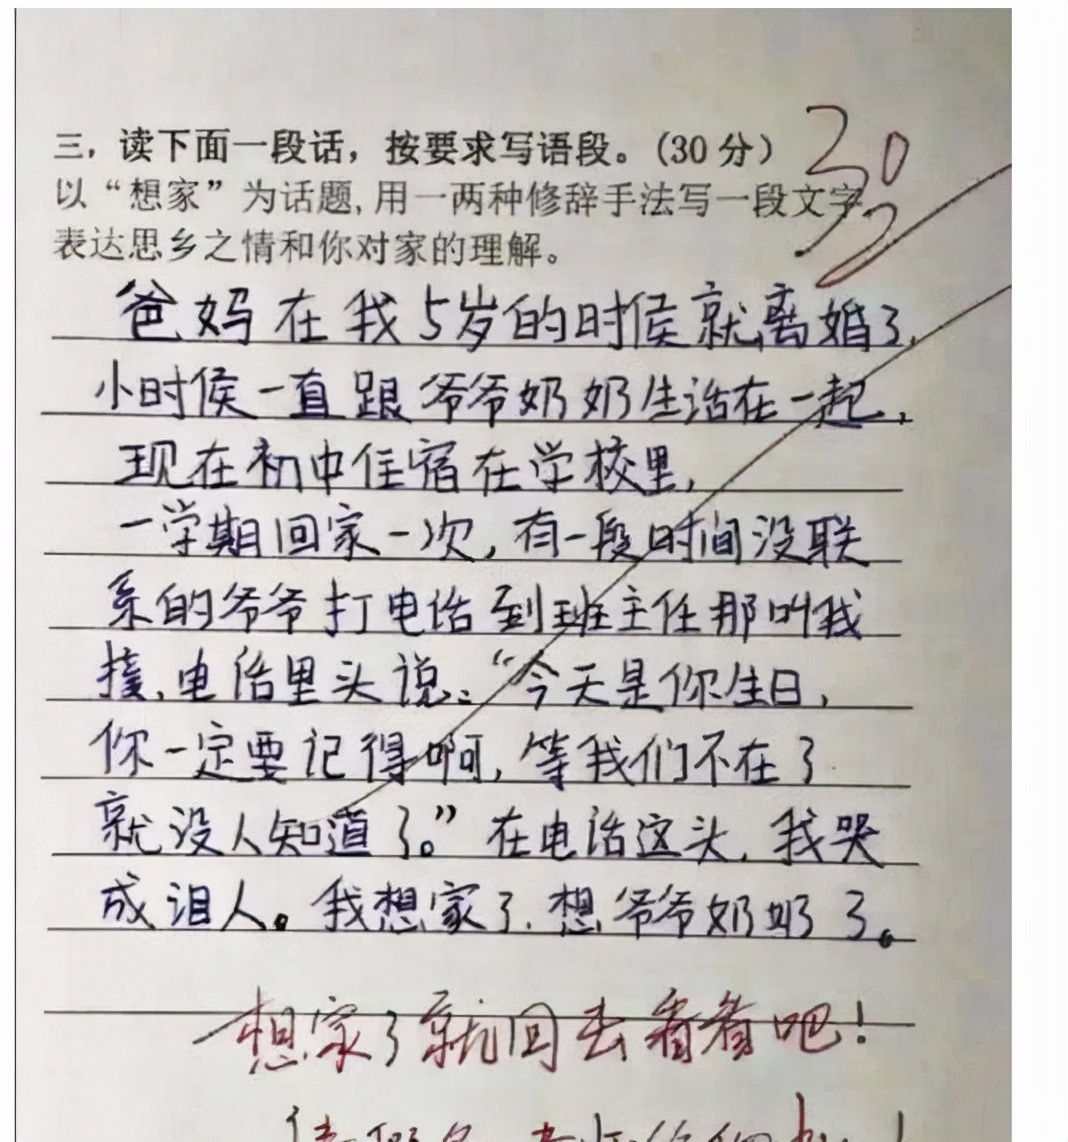 三，读下面一段话，按要求写语段。(30 分)
30
以“想家”为话题,用一两种修辞手法写一段文字
表达思乡之情和你对家的理解。
爸妈在我5岁的时侯就离婚了,
小时侯一直跟爷爷奶奶生活在一起,
现在初中住宿在学校里,
一学期回家一次,有一段时间没联
系的爷爷打电话到班主任那叫我
接,电话里头说:“今天是你生日,
你一定要记得啊,等我们不在了
就没人知道了。”在电话这头,我哭
成泪人。我想家了,想爷爷奶奶了。
想家了就回去看看吧!